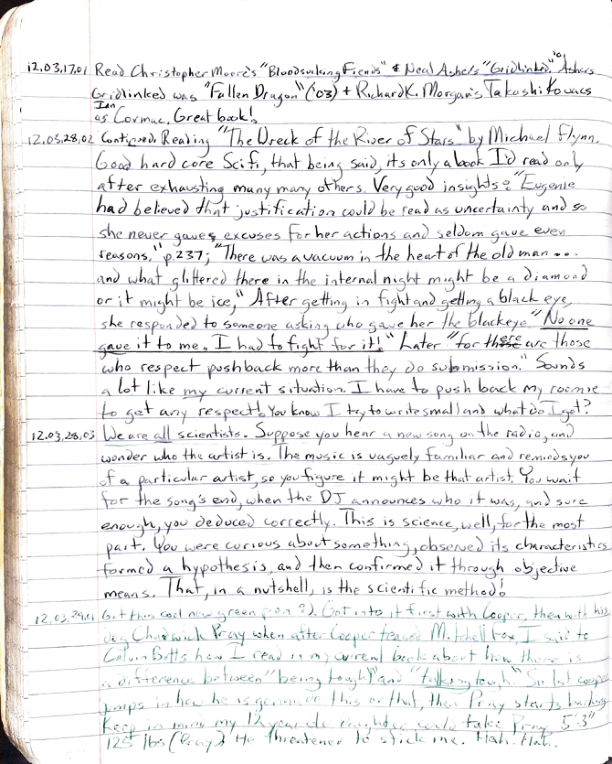 12.03.17.01 Read Christopher Moore's "Bloodsucking Fiends" & Neal Asher's "Gridlinked" '01 Ashers
Gridlinked was "Fallen Dragon" ('03) + Richard K. Morgan's Takeshi Kovacs
as Ian Cormac. Great book!
12.03.28.02 Continued Reading "The Wreck of the River of Stars" by Michael Flynn.
Good hard core Scifi, that being said, its only a book I'd read only
after exhausting many many others. Very good insights: "Eugenie
had believed that justification could be read as uncertainty and so
she never gave excuses for her actions and seldom gave even
reasons," p.237; "There was a vacuum in the heart of the old man ...
and what glittered there in the internal night might be a diamond
or it might be ice," After getting in fight and getting a black eye,
she responded to someone asking who gave her the blackeye "No one
gave it to me. I had to fight for it!" Later "for there are those
who respect pushback more than they do submission." Sounds
a lot like my current situation. I have to push back my roomie
to get any respect! You know I try to write small and what do I get?
12.03.28.03 We are all scientists. Suppose you hear a new song on the radio, and
wonder who the artist is. The music is vaguely familiar and reminds you
of a particular artist, so you figure it might be that artist. You wait
for the song's end, when the DJ announces who it was, and sure
enough, you deduced correctly. This is science, well, for the most
part. You were curious about something, observed its characteristics
formed a hypothesis, and then confirmed it through objective
means. That, in a nutshell, is the scientific method!
12.03.29.01 Got this cool new green pen :). Got into it first with Cooper, then with his
dog Chadwick Pray when after Cooper teased Mitchell Fox, I said to
Calvin Botts how I read in my current book about how there is
a difference between "being tough" and "talking tough." So lot Cooper
jumps in how he is gonna do this or that, then Pray starts
Keep in mind my 12 year old daughter could take Pray 5'3"
125 lbs (Pray). He threatened to stick me. Hah. Hah.